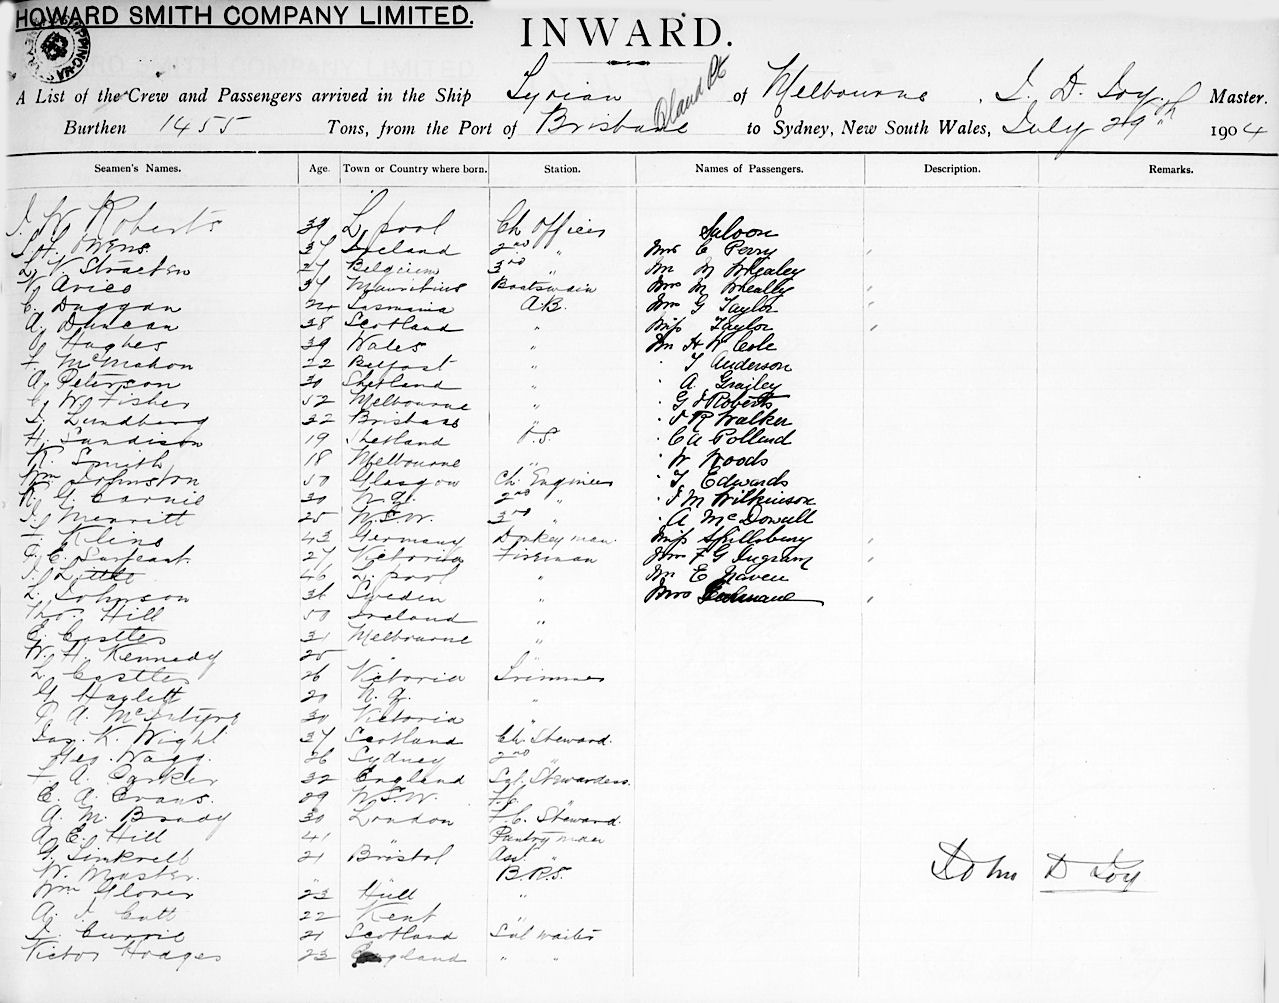 HOWARD SMITH COMPANY LIMITED.
INWARD.
A List of the Crew and Passengers arrived in the Ship Tyrian of Melbourne, J. D. Joy. Master.
Burthen 1455 Tons, from the Port of Brisbane to Sydney, New South Wales, July 29th 1904
Seamen's Names. Age. Town or Country where born. Station. Names of Passengers. Description. Remarks.
J. W. Roberts 39 L'pool Ch Officer Saloon
Owens 37 Ireland 2nd " Mrs C Perry
L. V. Stracten 27 Belgium 3rd " Mr M Whealey
37 Mauritius Boatswain Mrs M Wheally
C. Duggan Tasmania A.B. Mrs G Taylor
A. Duncan 38 Scotland " Miss Taylor
O. Hughes 39 Wales " Mr H W Cole
F. McMahon 22 Belfast " " T Anderson
A. Peterson 30 Shetland " " A Grailey
C. W. Fisher 52 Melbourne " " G J Roberts
J. Lundberg 32 Brisbane " " J R Walker
H. Sandison 19 Shetland O.S. " C A Pollard
R. Smith 18 Melbourne " " W Woods
Wm Johnston 50 Glasgow Ch. Engineer " T Edwards
R. G. Carnie 30 N.Z. 2nd " " J M Wilkinson
J. Merritt 25 N.S.W. 3rd " " A McDowall
F. Kline 43 Germany Donkeyman Miss Spillsbury
G. E. Sargeant 27 Victoria Fireman Mrs F G Ingram
J. Little 46 L'pool " Mr E Naveu
L. Johnson 36 Sweden " Mrs
Thos. Hill 50 Ireland "
E. Castles 31 Melbourne "
W. H. Kennedy 25 " "
L. Castles 26 Victoria Trimmer
G. Haylett 20 N.Z. "
A. McIntyre 30 Victoria "
Jas. K. Wight 37 Scotland Ch. Steward.
Geo. Wagg. 26 Sydney 2nd "
F. A. Parker 32 England Sal. Stewardess.
E. A. Evans. 29 N.S.W. F.C. "
A. M. Brady 30 London F.C. Steward.
A. E. Hill 41 " Pantryman
G. 21 Bristol Asst. "
W. Master. " " B.R.S.
Wm Glover 23 Hull "
A. J. Catt 22 Kent "
J. Currie 21 Scotland Sal waiter
Victor Hodges 23 England " "
John D Joy